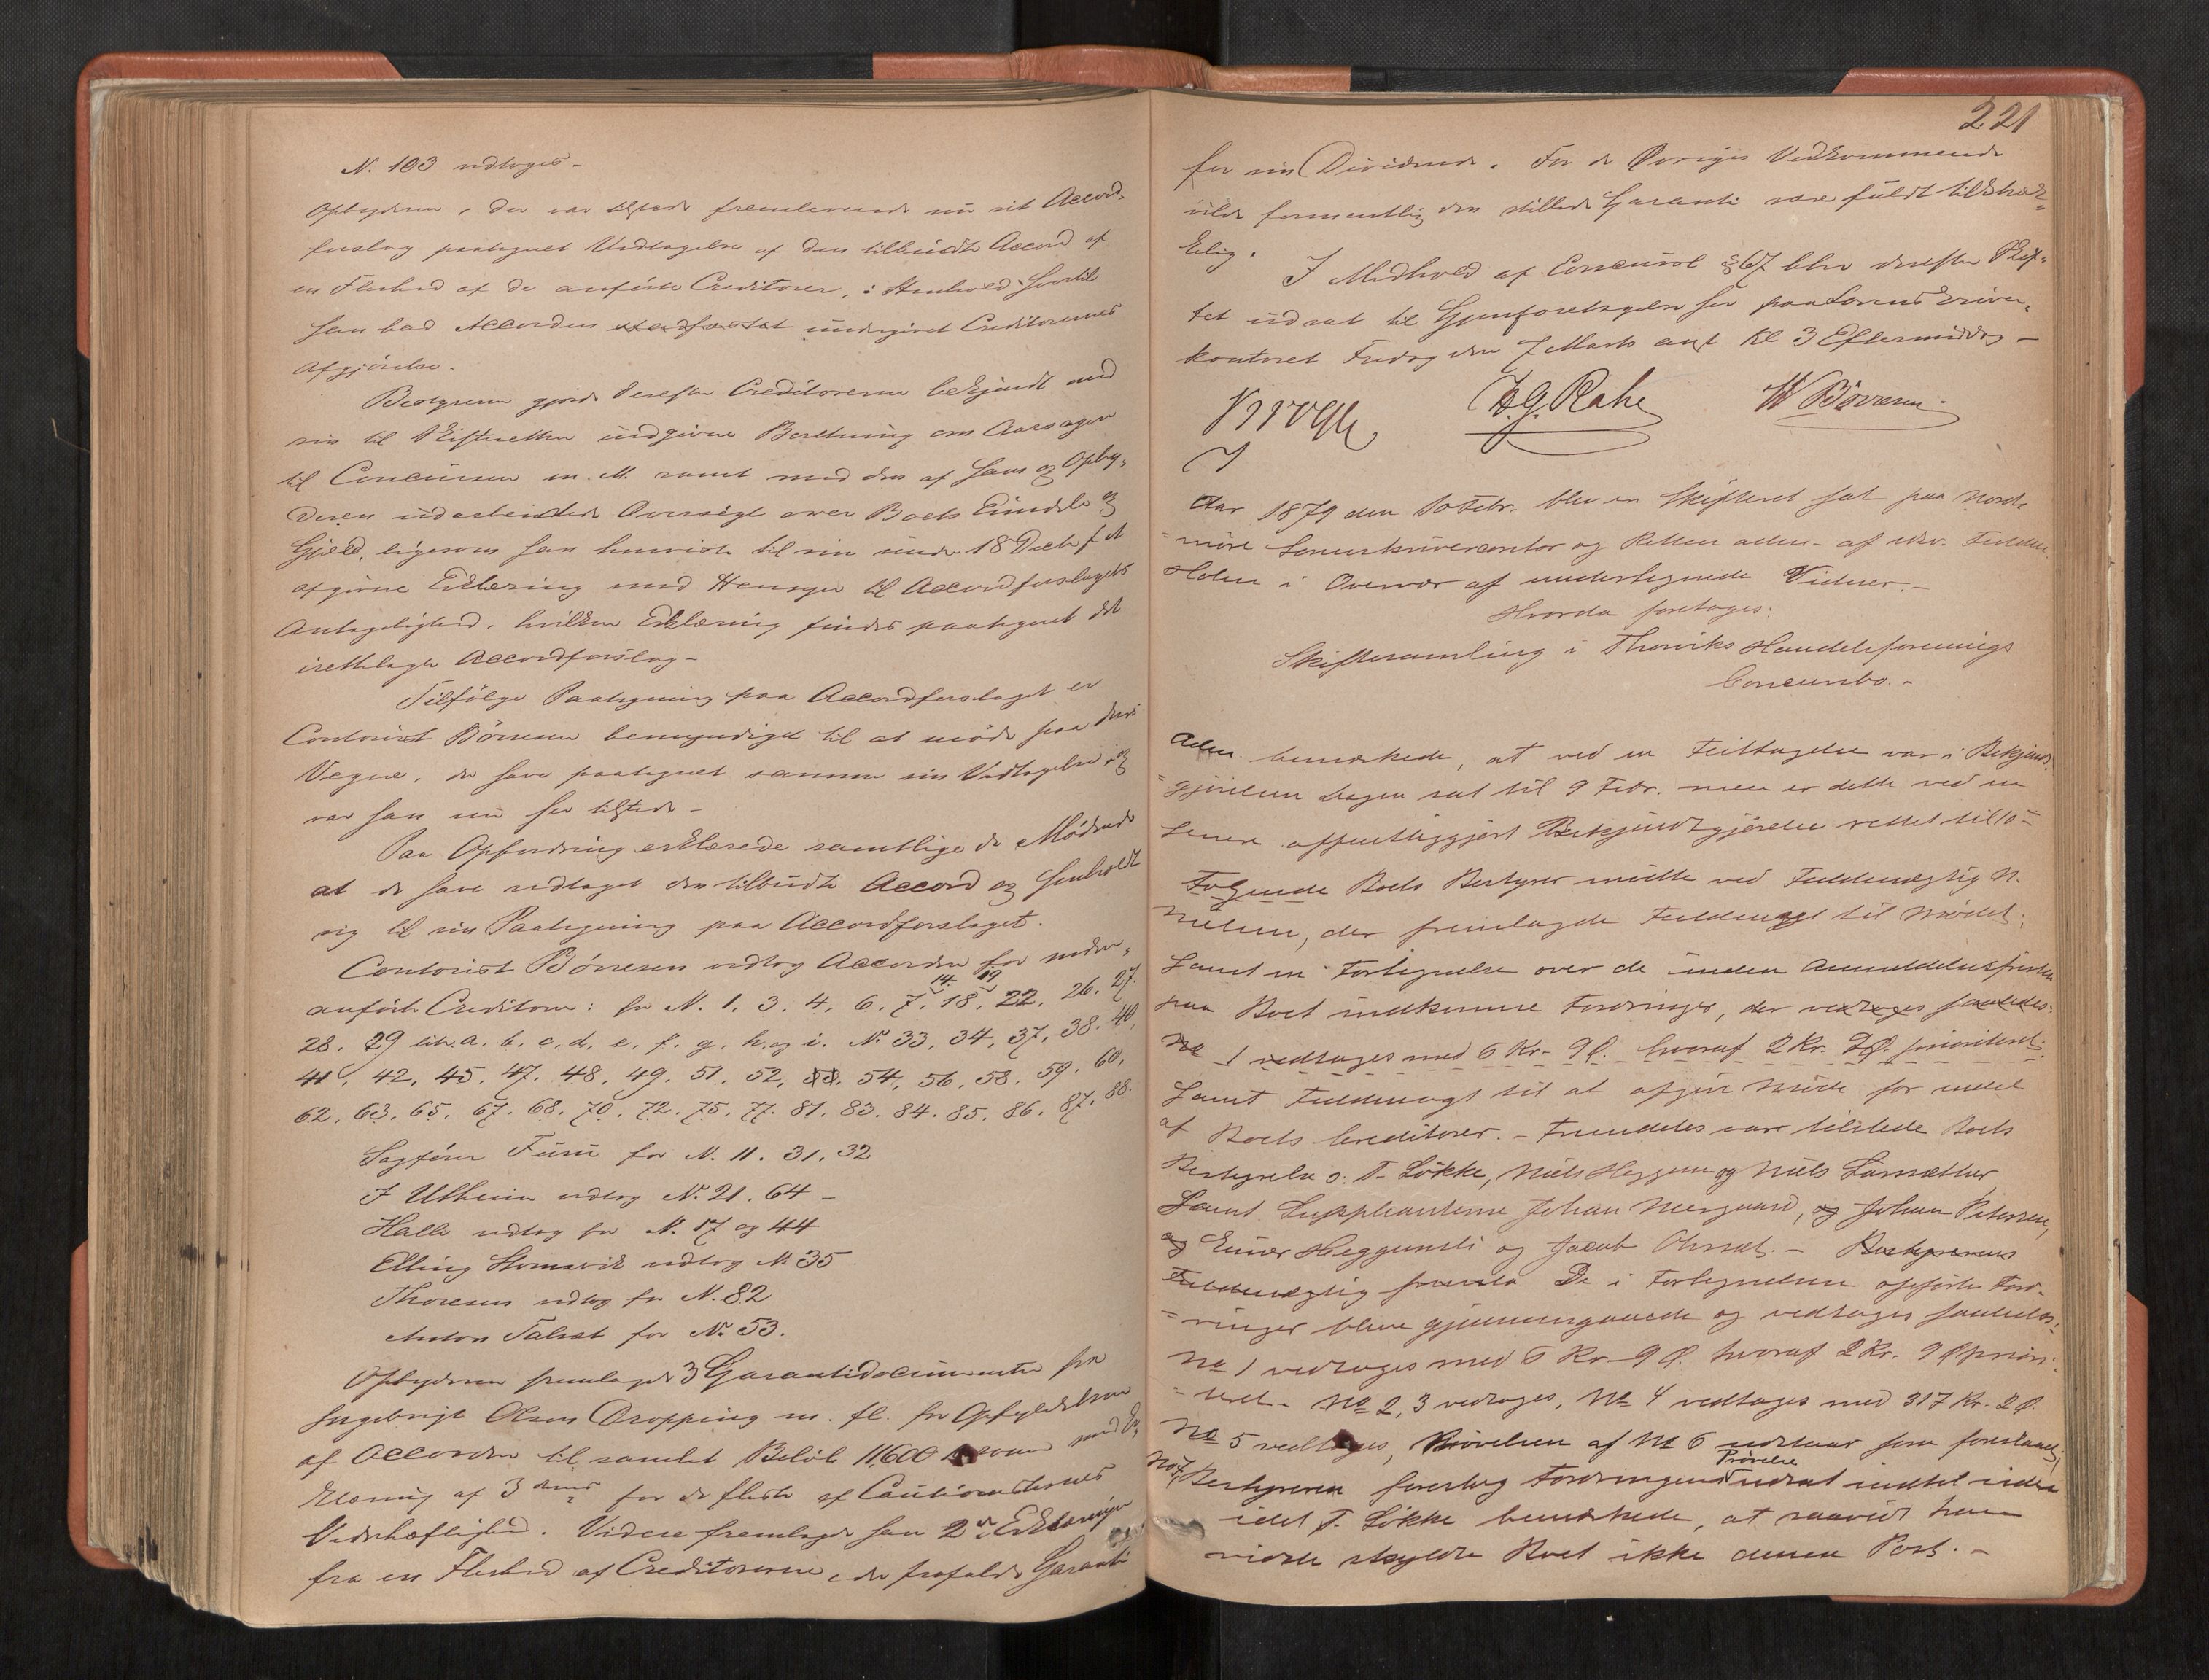 N. 103 vedtoges -
Opbyderen, der var tilstede fremleverede nu sit Accord-
forslag paategnet Vedtagelse af den tilbudte Accord af
en Flerhed af de anførte Creditorer, i Henhold hvortil
han bad Accorden stadfæstet undergivet Creditorernes
Afgjørelse.
Bestyreren gjorde derefter Creditorerne bekjendt med
sin til Skifteretten indgivne Beretning om Aarsagen
til Concursen m. M. samt med den af ham og Opby-
deren udarbeidede Oversigt over Boets Eiendele og
Gjeld, ligesom han henviste til sin under 18 Decbr f A
afgivne Erklæring med Hensyn til Accordforslagets
Antagelighed, hvilken Erklæring findes paategnet det
irettelagte Accordforslag -
Tilfølge Paategning paa Accordforslaget er
Contorist Börresen bemyndiget til at møde paa deres
Vegne, der have paategnet samme sin Vedtagelse og
var han nu her tilstede -
Paa Opfordring erklærede samtlige de Mødende
at de have vedtaget den tilbudte Accord og henholdt
sig til sin Paategning paa Accordforslaget.
Contorist Börresen vedtog Accorden for neden-
anførte Creditorer: for N. 1. 3. 4. 6. 7. 14. 18. 19 22. 26. 27.
28. 29 litr. a. b. c. d. e. f. g. h. og i. N. 33. 34. 37. 38. 40,
41, 42, 45. 47. 48. 49. 51. 52, 53. 54, 56. 58. 59. 60.
62. 63. 65. 67. 68. 70. 72. 75. 77. 81. 83. 84. 85. 86. 87. 88.
Sagfører Furu for N. 11. 31. 32
J Utheim vedtog N. 21. 64 -
Halle vedtog for N. 17 og 44
Elling vedtog N 35
Thoresen vedtog for N. 82
Anton Talset for N. 53.
Opbyderen fremlagde 3 Garantidocumenter fra
Ingebrigt Olsen Dropping m. fl. for Opfyldelsen
af Accorden til samlet Beløb 11600 Kroner med Er-
klæring af 3 for de fleste af Cautionisternes
Vederhæftighed. Videre fremlagde han 2de Erklæringer
fra en Flerhed af Creditorerne, der frafalde Garanti
221
for sin Dividende. For de Øvriges Vedkommende
vilde formentlig den stillede Garanti være fuldt tilstræk-
kelig.
I Medhold af Concursl § 67 blev derefter Skif-
tet udsat til Gjenforetagelse her paa Sorenskriver-
kontoret Fredag den 7 Marts angt Kl 3 Eftermiddag -
Krogh H.G. Rahe W Börresen
Aar 1879 den 10 Febr. blev en Skifteret sat paa Nord-
møre Sorenskrivercontor og Retten adm. af edsv. Fuldm.
Holm i Overvær af undertegnede Vidner. -
Hvorda foretoges:
Skiftesamling i Thorviks Handelsforenings
Concursbo. -
Adm. bemærkede, at ved en Feiltagelse var i Bekjendt-
gjørelsen Dagen sat til 9 Febr. men er dette ved en
senere offentliggjort Bekjendtgjørelse rettet til 10 -
Følgende Boets Bestyrer mødte ved Fuldmægtig N.
Nielsen, der fremlagde Fuldmagt til Mødet.
Samt en Fortegnelse over de inden Anmeldelsesfristen
paa Boet indkomne Fordringer, der vedtoges saaledes:
No 1 vedtages med 6 Kr. 9 Ø. hvoraf 2 Kr. 9 Ø. prioriteret.
Samt Fuldmagt til at afgive Møde for endel
af Boets Creditorer. - Fremdeles vare tilstede Boets
Bestyrelse o: T. Løkke, Niels Heggem og Niels Larsæther
Samt Suppleanterne Johan Nergaard, og Johan Petersen,
og Einer Heggemsli og Jacob . - Bestyrerens
Fuldmægtig De i Fortegnelsen opførte Ford-
ringer bleve gjennemgaaede og vedtoges saaledes:
No 1 vedtoges med 6 Kr. 9 Ø. hvoraf 2 Kr. 9 Ø priori-
teret. No 2, 3 vedtoges, No 4 vedtages med 317 Kr. 2 Ø.
No 5 vedtoges, Prøvelsen af No 6 udstaar som foreslaaet,
No 7. Bestyreren foreslog Fordringens Prøvelse udsat indtil videre
idet T. Løkke bemærkede, at saavidt han
vidste skyldte Boet ikke denne Post. -